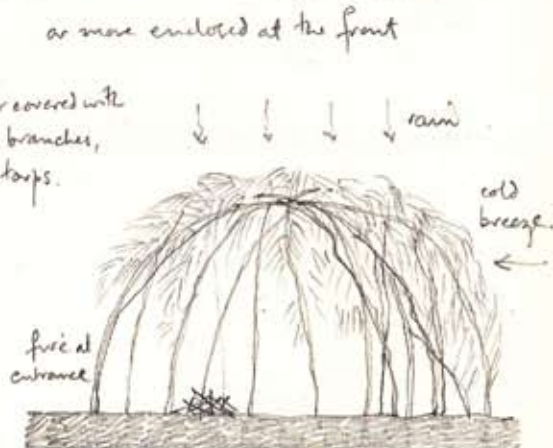 or more enclosed at the front
covered with
branches,
tarps.
rain
cold
breeze.
fire at
entrance